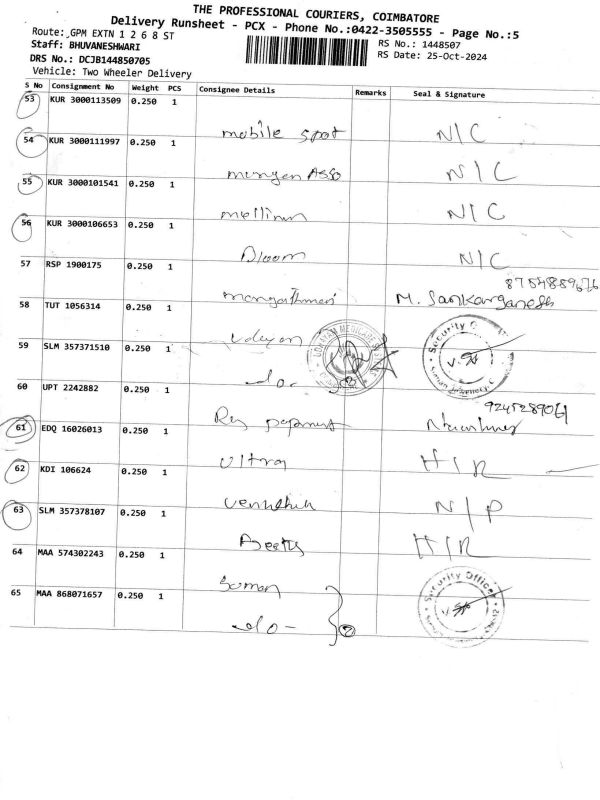 THE PROFESSIONAL COURIERS, COIMBATORE
Delivery Runsheet - PCX - Phone No.:0422-3505555 - Page No.:5
Route: GPM EXTN 1 2 6 8 ST
RS No.: 1448507
Staff: BHUVANESHWARI
RS Date: 25-Oct-2024
DRS No.: DCJB144850705
Vehicle: Two Wheeler Delivery
S No Consignment No Weight PCS Consignee Details Remarks Seal & Signature
53 KUR 3000113509 0.250 1
mobile spot N/C
54 KUR 3000111997 0.250 1
Asso N/C
55 KUR 3000101541 0.250 1
N/C
56 KUR 3000106653 0.250 1
Bloom N/C
57 RSP 1900175 0.250 1
8754889676
M. Sankarganesh
58 TUT 1056314 0.250 1
Udayan
Security
59 SLM 357371510 0.250 1
do-
60 UPT 2242882 0.250 1
9245289061
61 EDQ 16026013 0.250 1
Ultra H/R
62 KDI 106624 0.250 1
N/P
63 SLM 357378107 0.250 1
H/R
64 MAA 574302243 0.250 1
Soman
Security Officer
65 MAA 868071657 0.250 1
do- 2